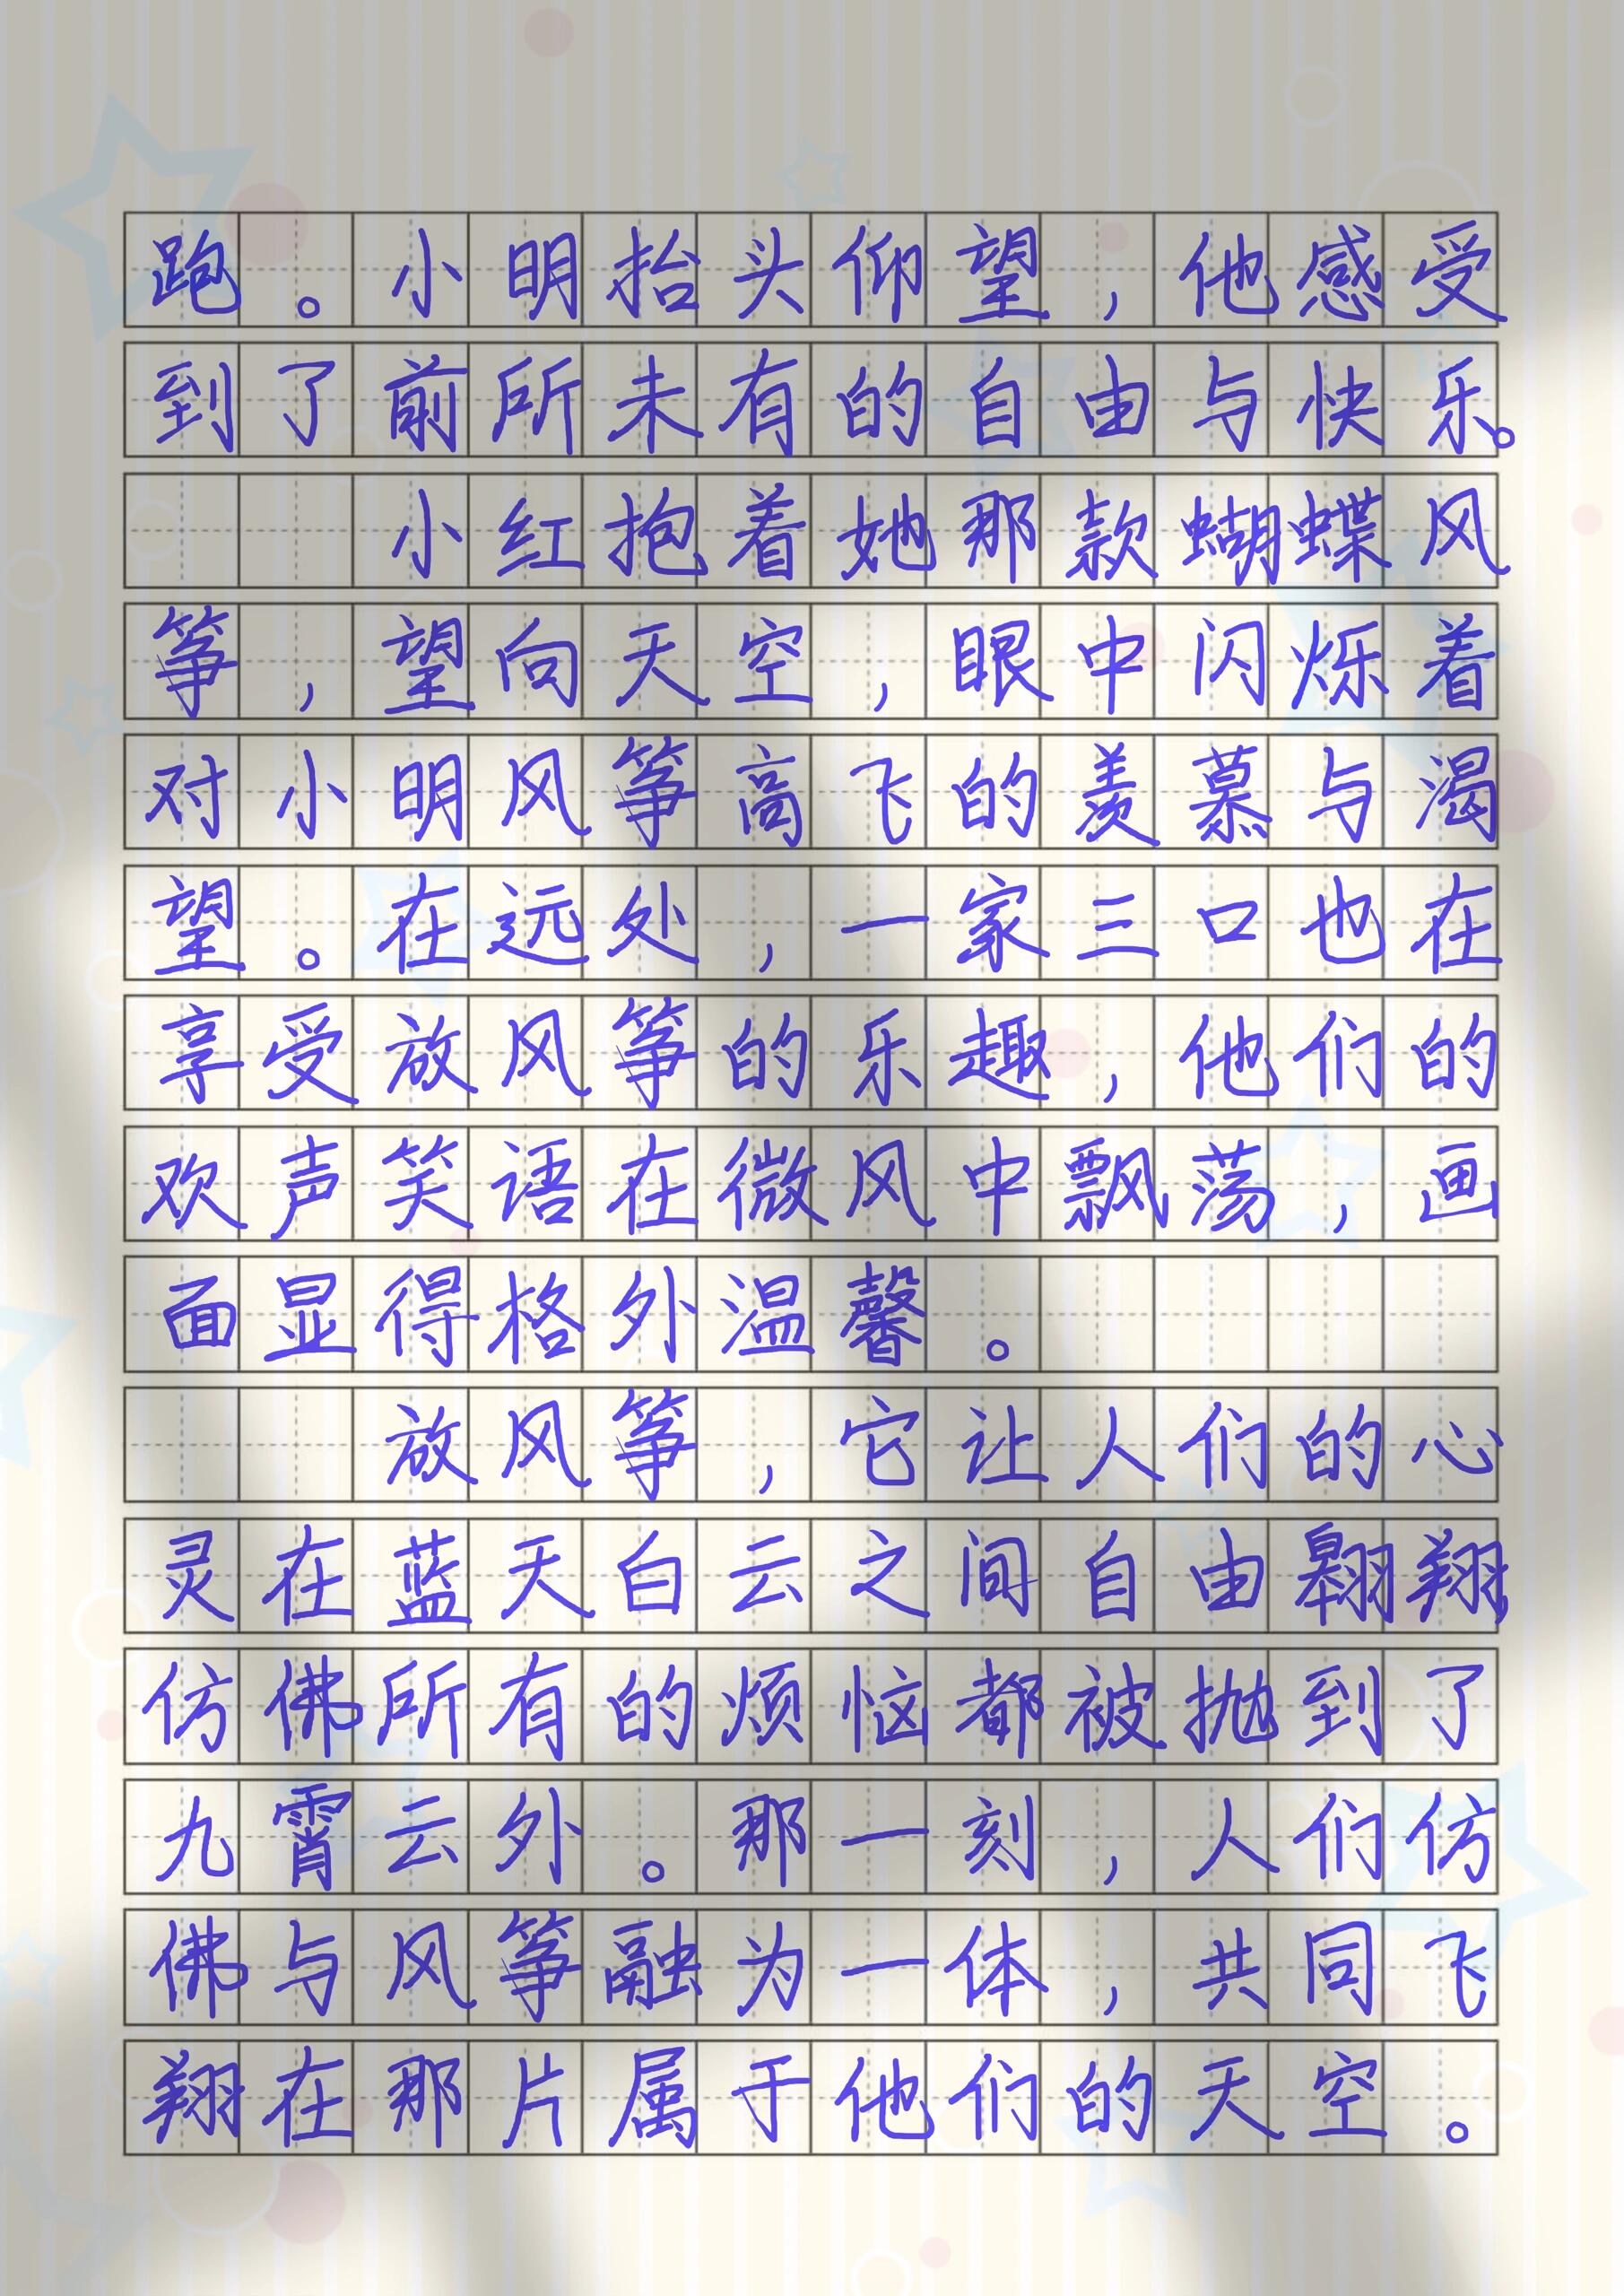 跑。小明抬头仰望，他感受
到了前所未有的自由与快乐。
小红抱着她那款蝴蝶风
筝，望向天空，眼中闪烁着
对小明风筝高飞的羡慕与渴
望。在远处，一家三口也在
享受放风筝的乐趣，他们的
欢声笑语在微风中飘荡，画
面显得格外温馨。
放风筝，它让人们的心
灵在蓝天白云之间自由翱翔，
仿佛所有的烦恼都被抛到了
九霄云外。那一刻，人们仿
佛与风筝融为一体，共同飞
翔在那片属于他们的天空。